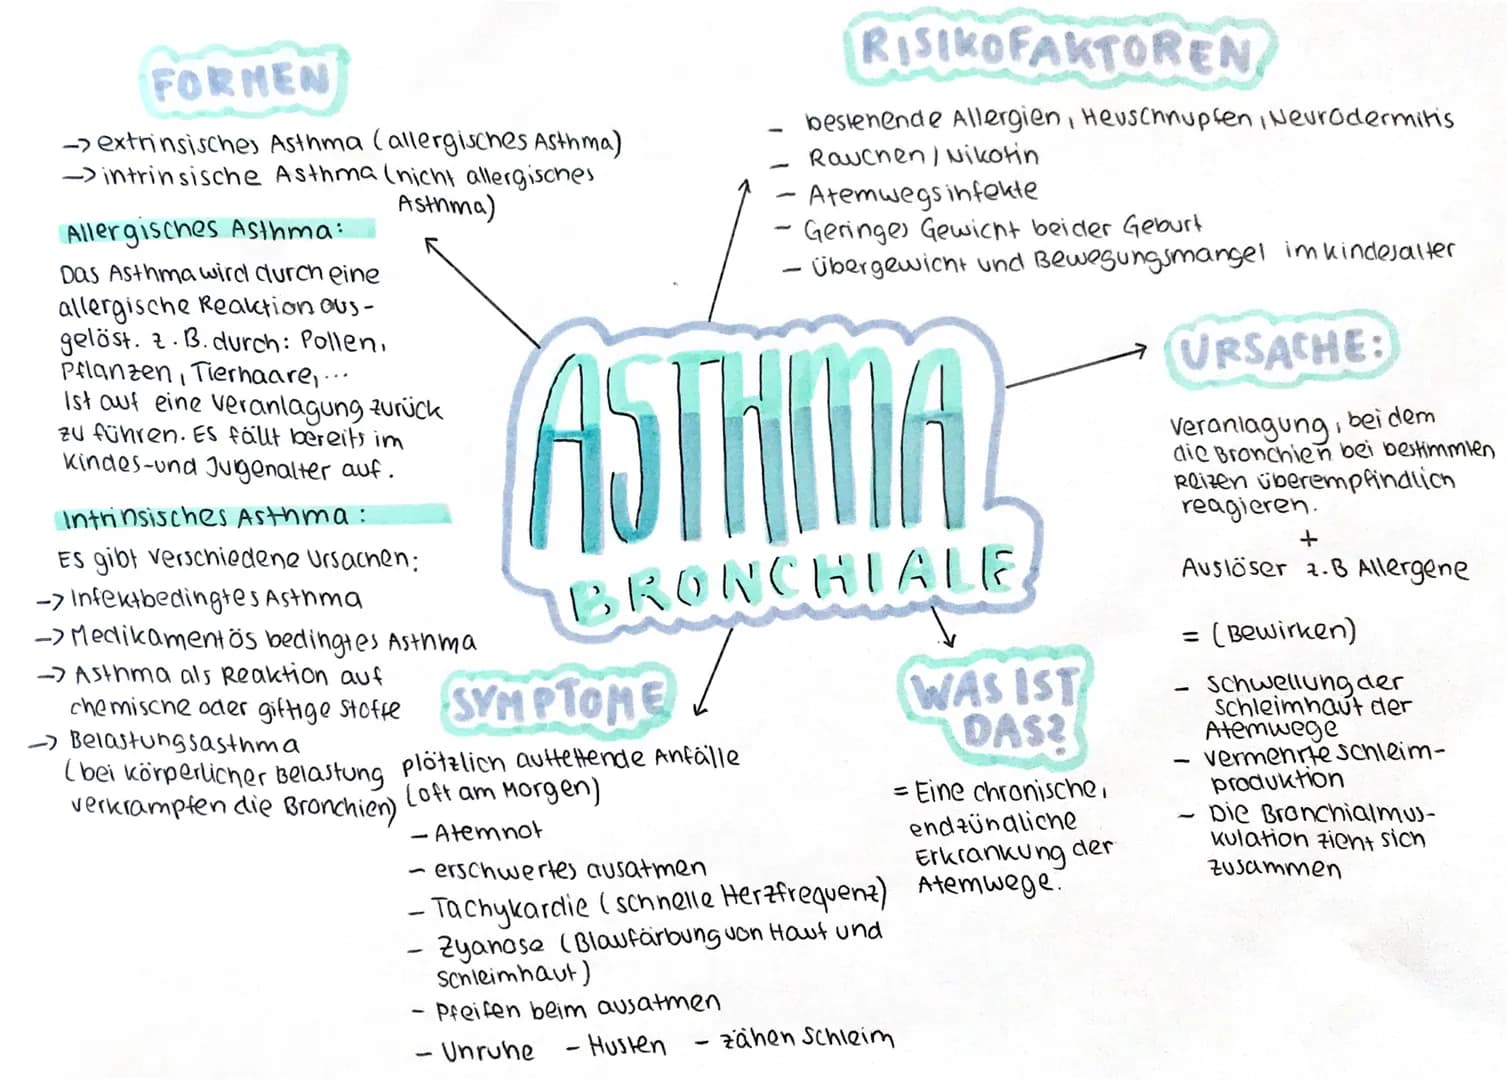 FORMEN
-> extrinsisches Asthma (allergisches Asthma)
-> intrinsische Asthma (nicht allergisches
Asthma)
Allergisches Asthma:
Das Asthma wird durch eine
allergische Reaktion aus-
gelöst. z.B. durch: Pollen,
Pflanzen, Tierhaare,...
Ist auf eine Veranlagung zurück
zu führen. Es fällt bereits im
Kindes-und Jugenalter auf.
Intrinsisches Asthma:
Es gibt verschiedene Ursachen:
-> Infektbedingtes Asthma
-> Medikamentös bedingtes Asthma
-> Asthma als Reaktion auf
chemische oder giftige Stoffe
-> Belastungsasthma
(bei körperlicher Belastung
verkrampfen die Bronchien)
RISIKOFAKTOREN
- bestehende Allergien, Heuschnupfen, Neurodermitis
- Rauchen / Nikotin
- Atemwegsinfekte
- Geringes Gewicht bei der Geburt
- Übergewicht und Bewegungsmangel im Kindesalter
ASTHMA
BRONCHIALE
URSACHE:
Veranlagung, bei dem
die Bronchien bei bestimmten
Reizen überempfindlich
reagieren.
+
Auslöser z.B Allergene
= (Bewirken)
- Schwellung der
Schleimhaut der
Atemwege
- vermehrte Schleim-
produktion
- Die Bronchialmus-
kulation zieht sich
zusammen
SYMPTOME
plötzlich auftettende Anfälle
(oft am Morgen)
- Atemnot
- erschwertes ausatmen
- Tachykardie (schnelle Herzfrequenz)
- Zyanose (Blaufärbung von Haut und
Schleimhaut)
- Pfeifen beim ausatmen
- Unruhe - Husten - zähen Schleim
WAS IST
DAS?
= Eine chronische,
endzündliche
Erkrankung der
Atemwege.